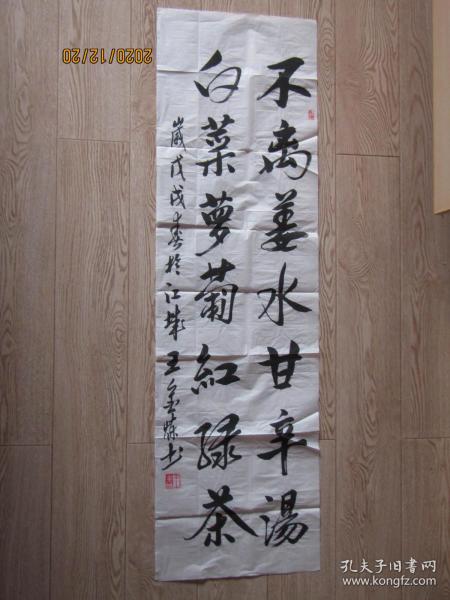 不离姜水甘辛湯
白菜萝蔔紅绿茶
歲戊戌春於江城王金
2020/12/20
孔夫子旧书网
www.kongfz.com